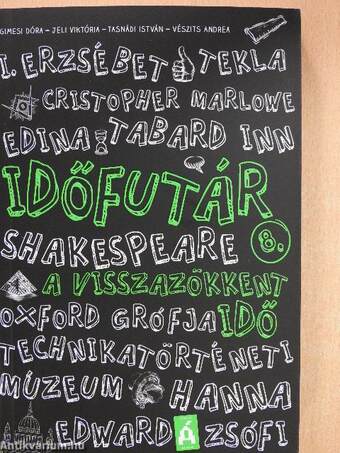 GIMESI DÓRA – JELI VIKTÓRIA – TASNÁDI ISTVÁN – VÉSZITS ANDREA
I. ERZSÉBET TEKLA
CRISTOPHER MARLOWE
EDINA TABARD INN
IDŐFUTÁR
SHAKESPEARE 8.
A VISSZAZÖKKENT
OXFORD GRÓFJA IDŐ
TECHNIKATÖRTÉNETI
MÚZEUM HANNA
EDWARD Á ZSÓFI
Antikvarium.hu